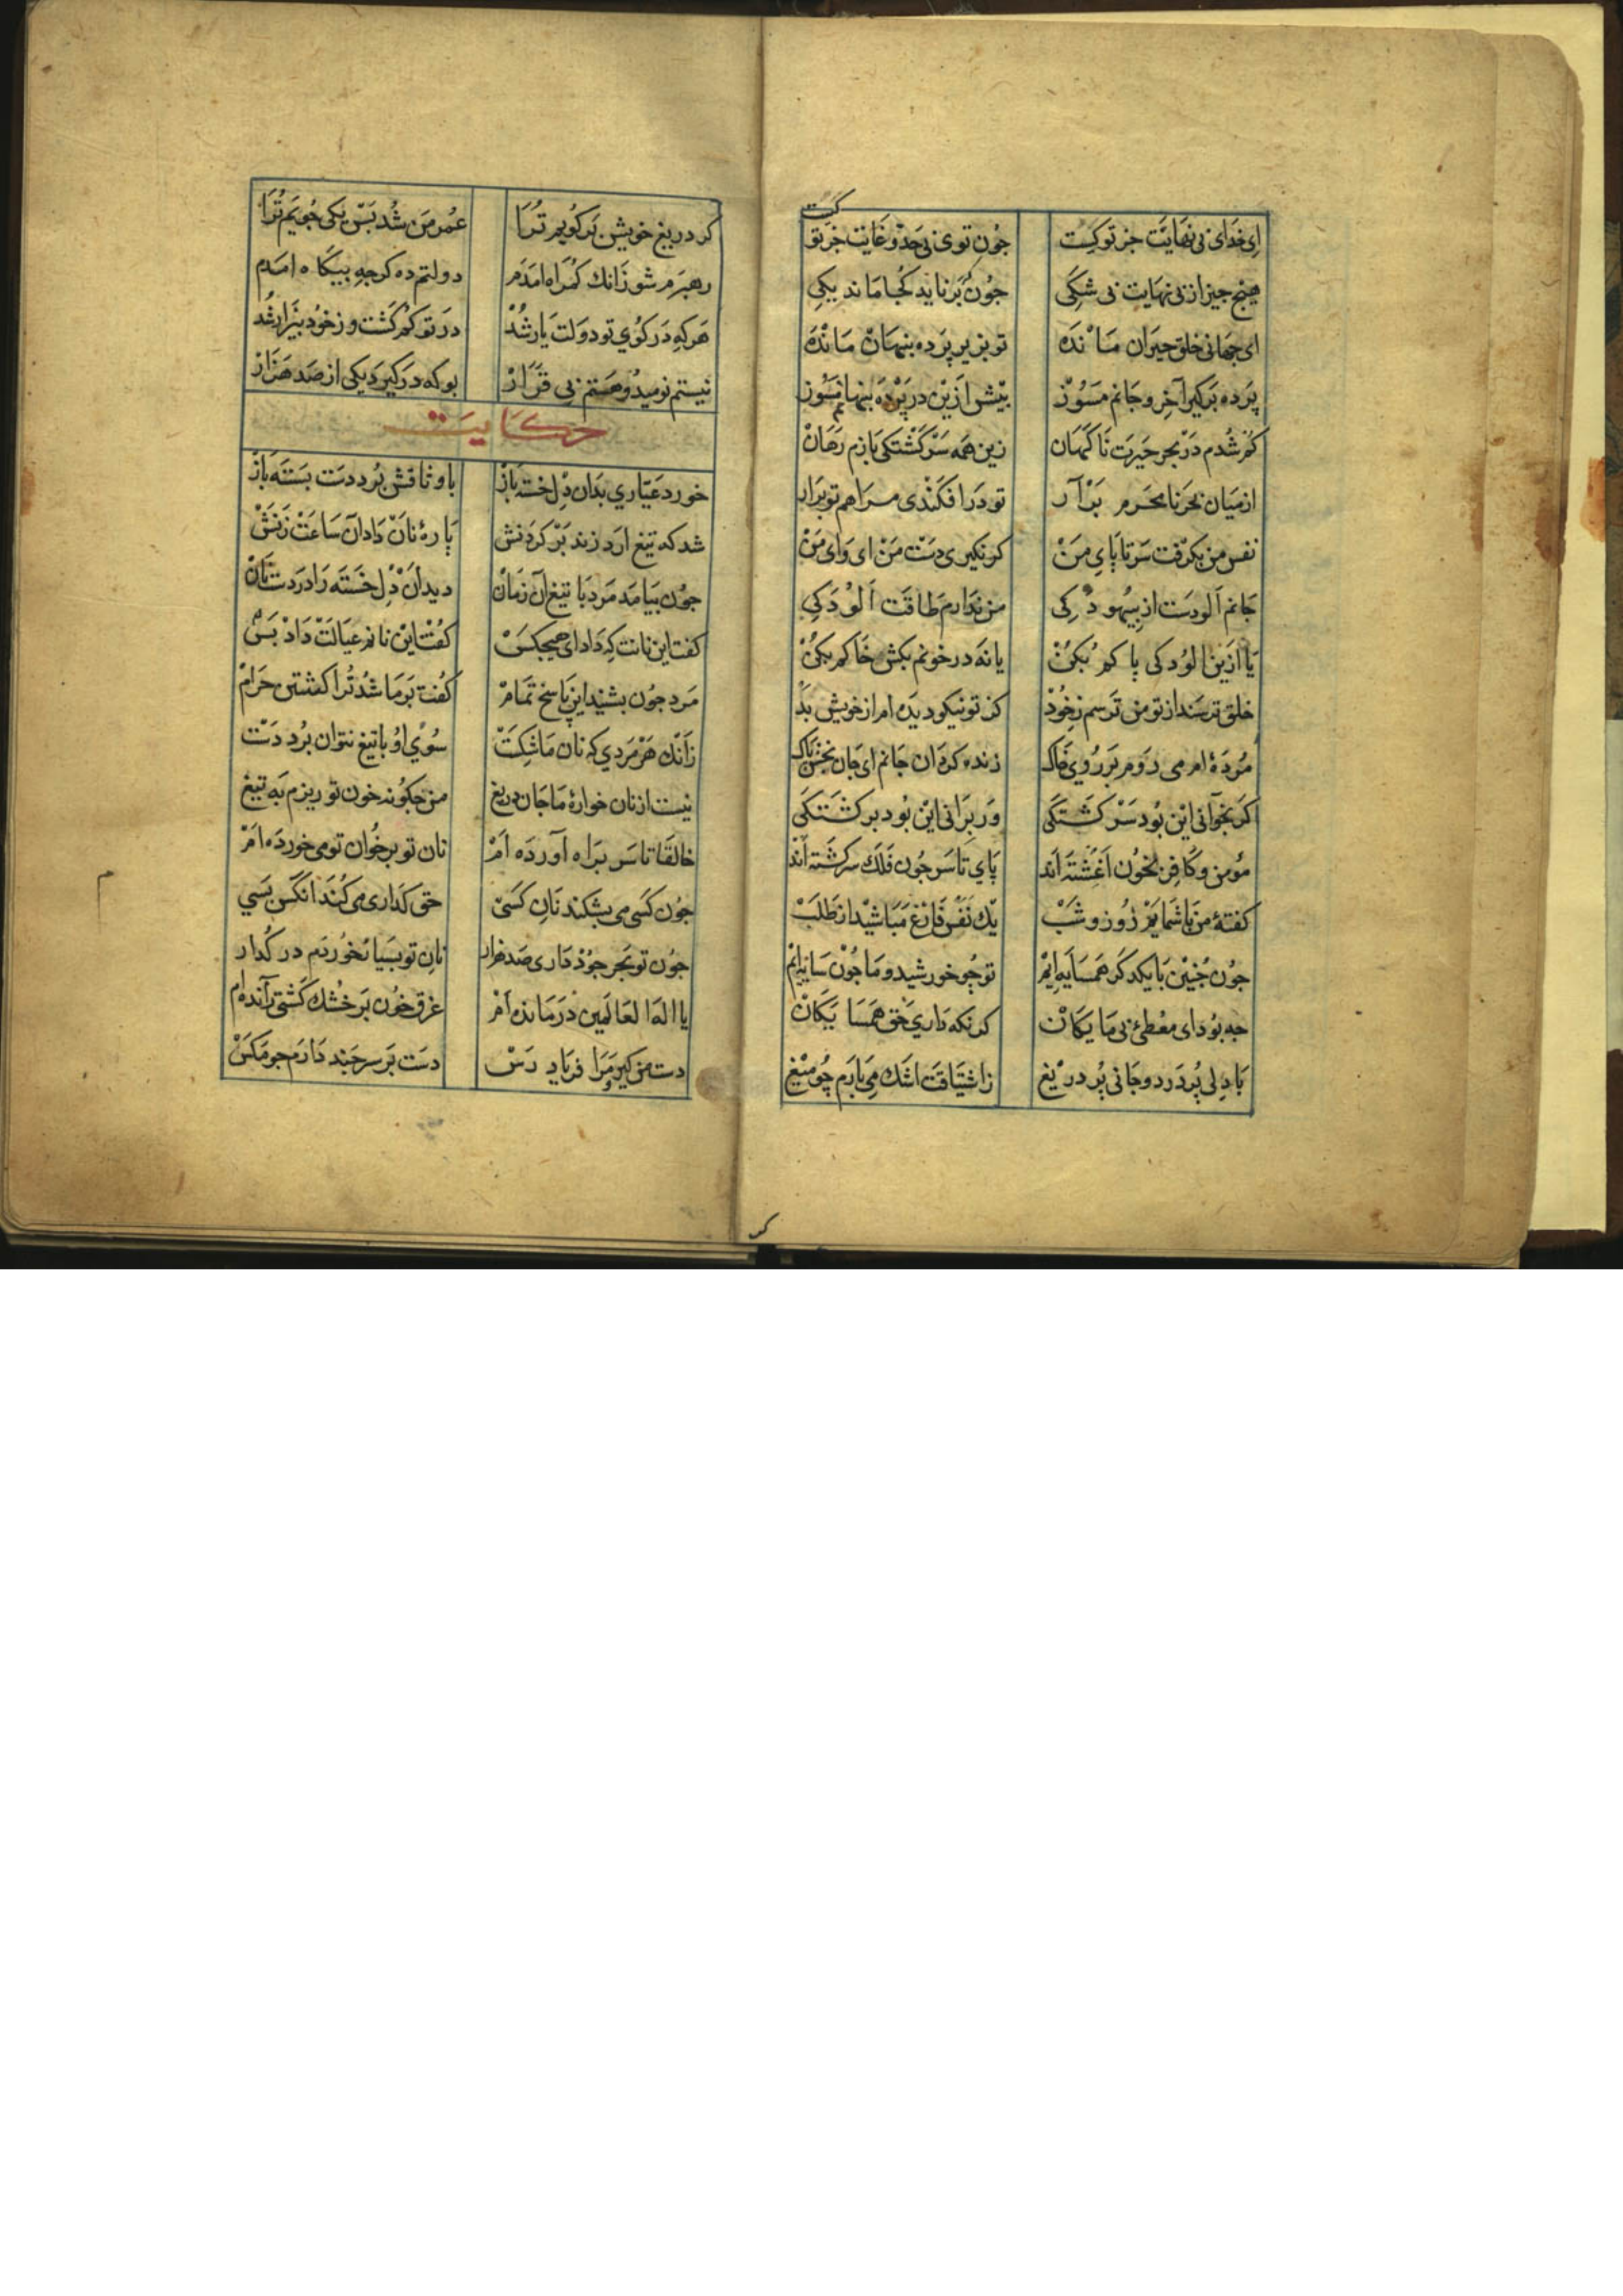 ای خدای بی نهایت جز تو کیست جون توی بی حد و غایت جز تو کیست
هیج جیز از بی نهایت بی شکی جون برناید کجا ماند یکی
ای جهانی خلق حیران مانده تو بزیر پرده پنهان مانده
پرده برکیر آخر و جانم مسوز بیش ازین در پرده پنهانم مسوز
کم شدم در بحر حیرت ناکهان زین همه سرکشتکی بازم رهان
از میان بحر نامحرم برآر تو درافکندی مرا هم تو برار
نفس من بکرفت سر تا پای من کر نکیری دست من ای وای من
جانم آلودست از بیهودکی من ندارم طاقت آلودکی
یا ازین الودکی پاکم بکن یا نه در خونم بکش خاکم بکن
خلق ترسند از تو من ترسم ز خود کز تو نیکو دیده ام از خویش بد
مرده ام می روم بر روی خاک زنده کردان جانم ای جان بخش پاک
مومن و کافر بخون اغشته اند پای تا سر جون فلک سرکشته اند
کر بخوانی این بود سرکشتکی ور برانی این بود برکشتکی
کفتهٔ من با شمایم روز و شب یک نفس فارغ مباشید از طلب
جون جنین با یکدکر همسایه ایم تو جو خورشید و ما جون سایه ایم
جه بود ای معطی بی مایکان کر نکه داری حق همسایکان
با دلی پر درد و جانی پر دریغ ز اشتیاقت اشک می بارم چو میغ
کر دریغ خویش برکویم ترا عمر من شد بس یکی جویم ترا
رهبرم شو زانک کمراه امدم دولتم ده کرجه بیکاه امدم
هر که در کوی تو دولت یار شد در تو کم کشت و ز خود بیزار شد
نیستم نومید و هستم بی قرار بوکه درکیرد یکی از صد هزار
حکایت
خورد عیاری بدان دل خسته باز با وثاقش برد دست بسته باز
شد که تیغ ارد زند بر کردنش پارهٔ نان داد آن ساعت زنش
جون بیامد مرد با تیغ آن زمان دید آن دل خسته را در دست نان
کفت این نانت که داد ای هیجکس کفت این نانم عیالت داد بس
مرد جون بشنید این پاسخ تمام کفت بر ما شد ترا کشتن حرام
زانک هر مردی که نان ما شکست سوی او با تیغ نتوان برد دست
نیست از نان خوارهٔ ما جان دریغ من جکونه خون تو ریزم به تیغ
خالقا تا سر براه آورده ام نان تو بر خوان تو می خورده ام
جون کسی می بشکند نان کسی حق کداری می کند انکس بسی
جون تو بحر جود داری صد هزار نان تو بسیار خوردم در کدار
یا اله العالمین درمانده ام غرق خون بر خشک کشتی رانده ام
دست من کیر و مرا فریاد رس دست بر سر جند دارم جو مکس
کر